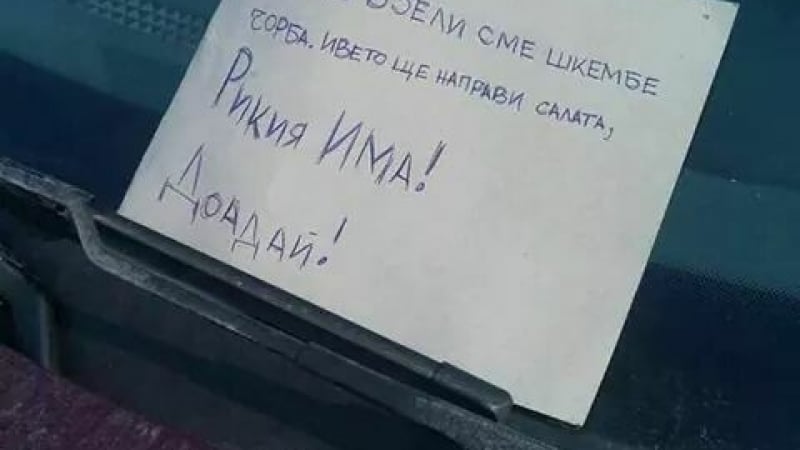 СМЕ ШКЕМБЕ
ЧОРБА. ИВЕТО ЩЕ НАПРАВИ САЛАТА,
РИКИЯ ИМА!
ДОАДАЙ!